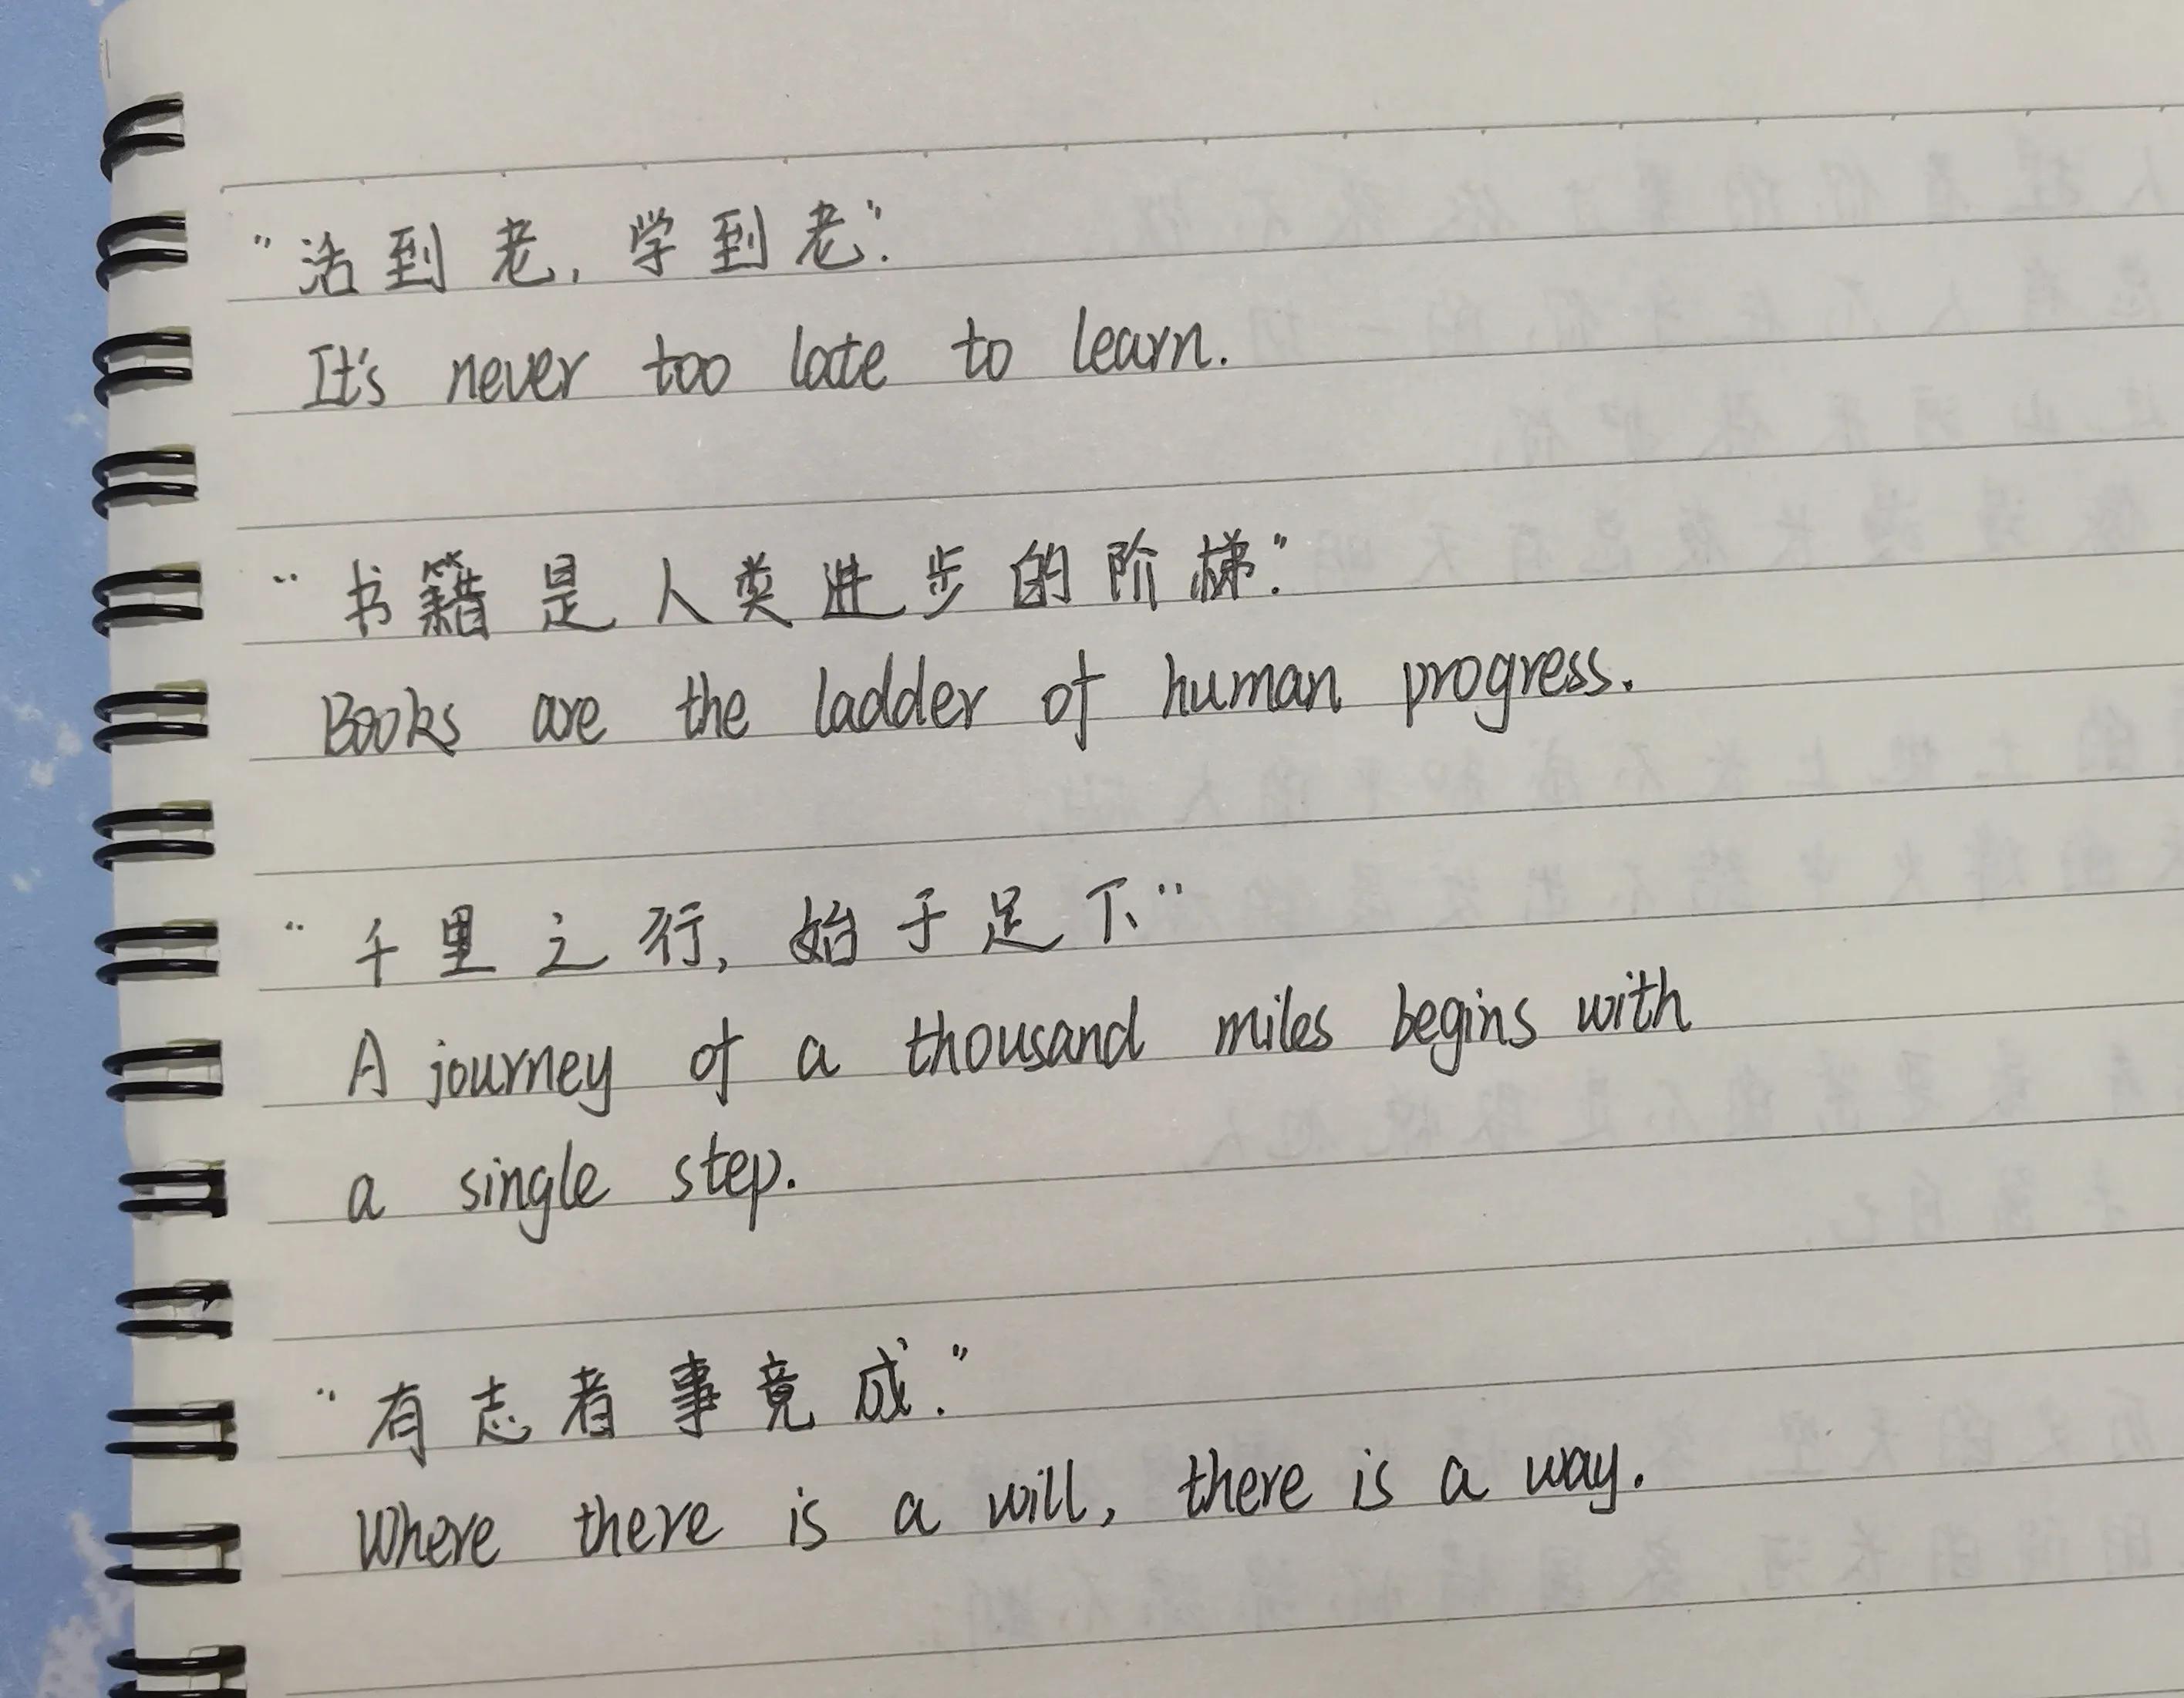 "活到老，学到老".
It's never too late to learn.
"书籍是人类进步的阶梯".
Books are the ladder of human progress.
"千里之行，始于足下"
A journey of a thousand miles begins with
a single step.
"有志者事竟成."
Where there is a will, there is a way.